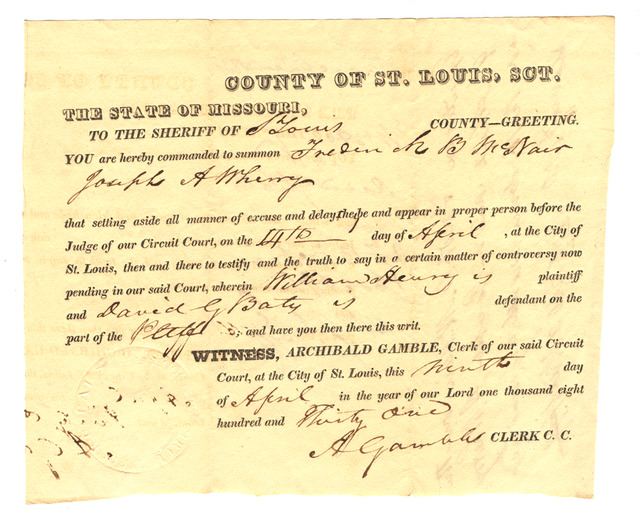 COUNTY OF ST. LOUIS, SCT.
THE STATE OF MISSOURI,
TO THE SHERIFF OF St Louis COUNTY—GREETING.
YOU are hereby commanded to summon Frederick B McNair
Joseph A Wherry
that setting aside all manner of excuse and delay, they be and appear in proper person before the
Judge of our Circuit Court, on the 14th day of April , at the City of
St. Louis, then and there to testify and the truth to say in a certain matter of controversy now
pending in our said Court, wherein William Henry is plaintiff
and David G Bates is defendant on the
part of the Plff and have you then there this writ.
WITNESS, ARCHIBALD GAMBLE, Clerk of our said Circuit
Court, at the City of St. Louis, this ninth day
of April in the year of our Lord one thousand eight
hundred and Thirty One
A Gamble CLERK C. C.